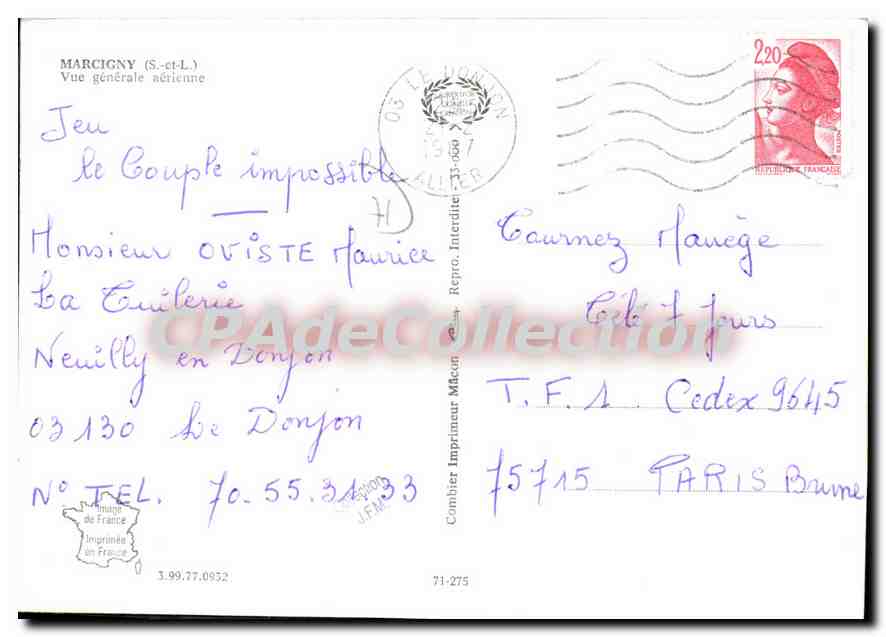 MARCIGNY (S.-et-L.)
Vue générale aérienne
Jeu
le Couple impossible
Monsieur OVISTE Maurice
La Tuilerie
Neuilly en Donjon
03130 Le Donjon
N° TEL. 70.55.31.33
Image
de France
Imprimée
en France
3.99.77.0932
71-275
Combier Imprimeur Mâcon
Repro. Interdite
03 LE DONJON
ALLIER
2,20
REPUBLIQUE FRANÇAISE
Tournez Manège
Télé 7 Jours
T.F.1. Cedex 9645
75715 PARIS Brune
CPAdeCollection